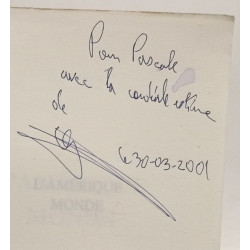 Pour Pascale
avec la cordiale estime
de
le 30-03-2001
L'AMÉRIQUE
MONDE